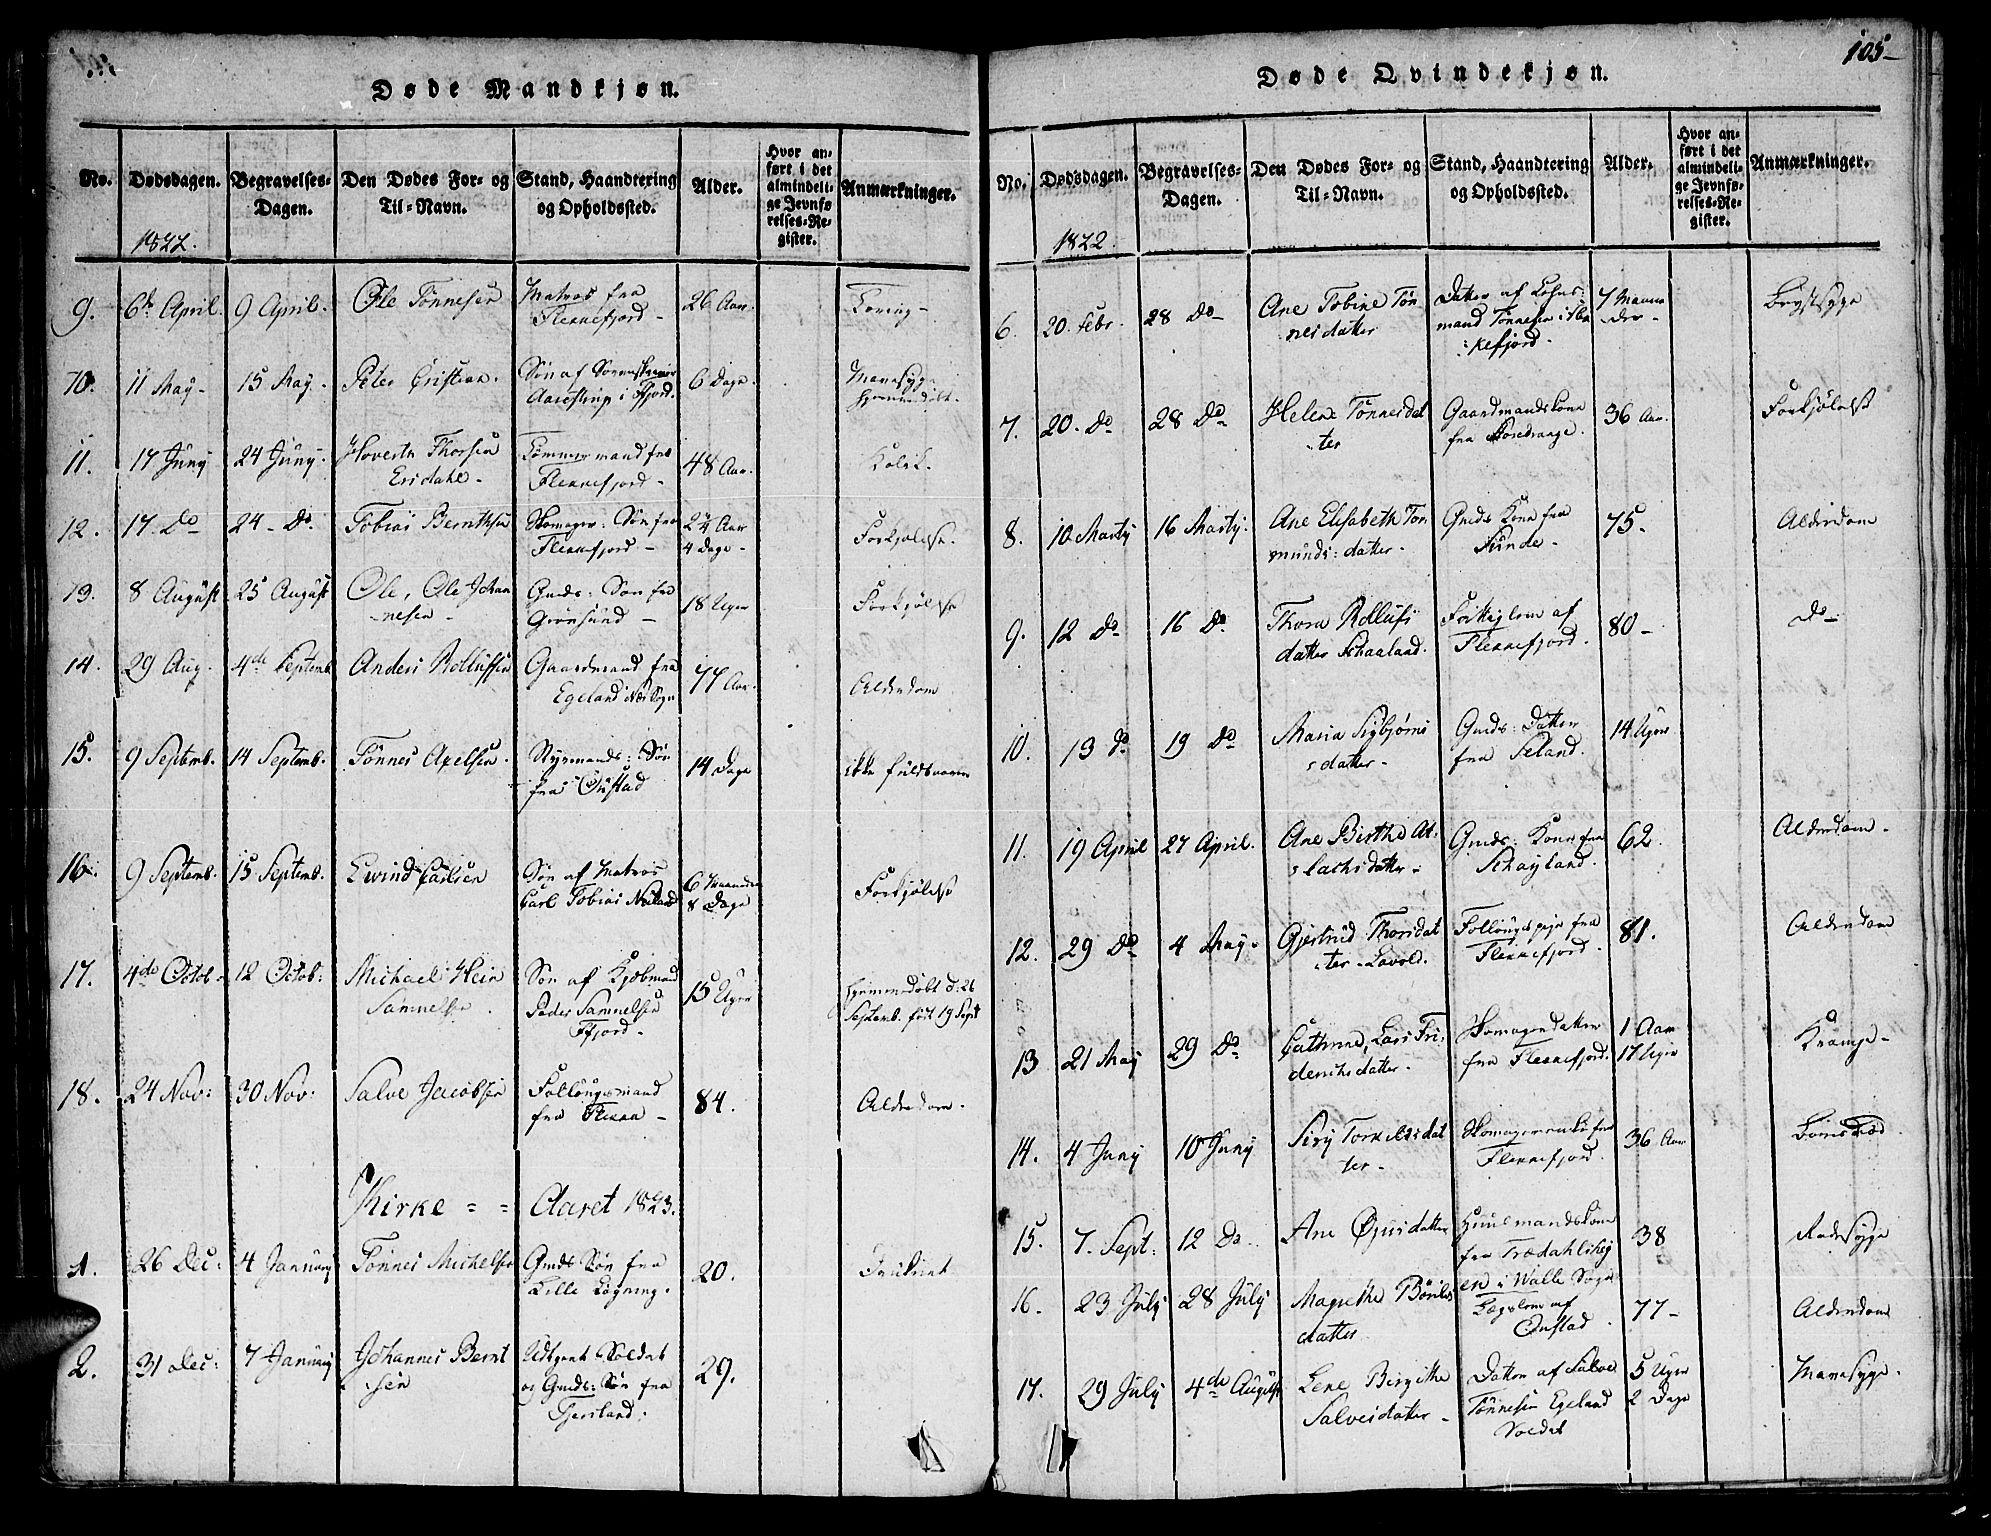 Døde Mandkjøn.
No. Dødsdagen. Begravelses-Dagen. Den Dødes For- og Til-Navn. Stand, Haandtering og Opholdssted. Alder. Hvor anført i det almindelige Jevnførelses-Register. Anmærkninger.
1822.
9. 6te April. 9 April. Ole Tønnesen Matros fra Flekkefjord - 26 Aar.
10. 11 May - 15 May. Peter Cristian. Søn af Sorenskriver Aarestrup i Fjord. 6 Dage. Mavesyge. hjemmedøbt.
11. 17 Juny 24 Juny. Thorsen Tømmermand fra Flekkefjord - 48 Aar. Kolik.
12. 17. Do 24 - Do. Tobias Bernthsen Skomager: Søn fra Flekkefjord - 4 Dage - Forkjølelse.
13. 8 August 25 August Ole, Ole Johannesen - Gmds: Søn fra Grønsund - 18 Uger Forkjølelse
14. 29 Aug. 4de Septemb Anders Rolluffsen Gaardmand fra Egeland i Næs Sogn 77 Aar. Alderdom
15. 9 Septemb. 14 Septemb. Tønnes Axelsen. Styrmands: Søn fra 14 Dage ikke fuldbaaren
16. 9 Septemb. 15 Septemb. Ewind Carlsen Søn af Matros Carl Tobias 6 Maaneder 8 Dage Forkjølelse
17. 4de Octob. 12 Octob: Michael Hein Samuelsen Søn af Kjøbmand Peder Samuelsen Ffjord. 15 Uger hjemmedøbt d: 26 Septemb. født 19 Sept
18. 24 Nov: 30 Nov: Salve Jacobsen Follougsmand fra Flekke - 84. Alderdom.
Kirke = = Aaret 1823.
1. 26 Dec: 4 January Tønnes Michelsen Gmds Søn fra Lille Løgning. 20.
2. 31 Dec: 7 January Johannes Berntsen Udtjent Soldat og Gmds: Søn fra 29.
Døde Qvindekjøn.
105-
No. Dødsdagen. Begravelses-Dagen. Den Dødes For- og Til-Navn. Stand, Haandtering og Opholdssted. Alder. Hvor anført i det almindelige Jevnførelses-Register. Anmærkninger.
1822.
6. 20. Febr. 28 Do - Ane Tobine Tønnesdatter Datter af mand Tønnesen i Flekkefjord. 7 Maaneder - Brystsyge
7. 20. Do 28 Do Helene Tønnesdatter Gaardmandskone fra 36 Aar. Forkjølelse
8. 10 Marty 16 Marty. Ane Elisabeth Tormunds: datter. Gmds Kone fra Sunde - 75 - Alderdom
9. 12 Do 16 Do. Thora Rollufsdatter Schaaland. Fattiglem af Flekkefjord. 80 - Do -
10. 13 Do 19 Do Maria Sigbjørnsdatter - Gmds: Datter fra Seland. 14 Uger
11. 19 April 27 April. Ane Birthe Atslachsdatter - Gmds: Kone fra 62. Alderdom.
12. 29 Do 4 May. Gjertrud Thorsdatter Lavold. fra Flekkefjord. 81. Alderdom
13 21 May 29 Do Cathrine, Lars Fridenrichsdatter. Skomagerdatter fra Flekkefjord. 1 Aar 17 Uger Krampe -
14. 4 Juny 10 Juny Siry Torkelsdatter - fra Flekkefjord. 36 Aar Barnsød.
15. 7. Sept: 12 Do. Ane datter Huusmandskone fra i Walle Sogn 38 Radesyge
16. 23 July 28 July Magrethe datter Lægslem af 77 - Alderdom
17. 29 July 4de August Lene Birgithe Salvesdatter - Datter af Salve Tønnesen Egeland Soldat 5 Uger 2 Dage Mavesyge.